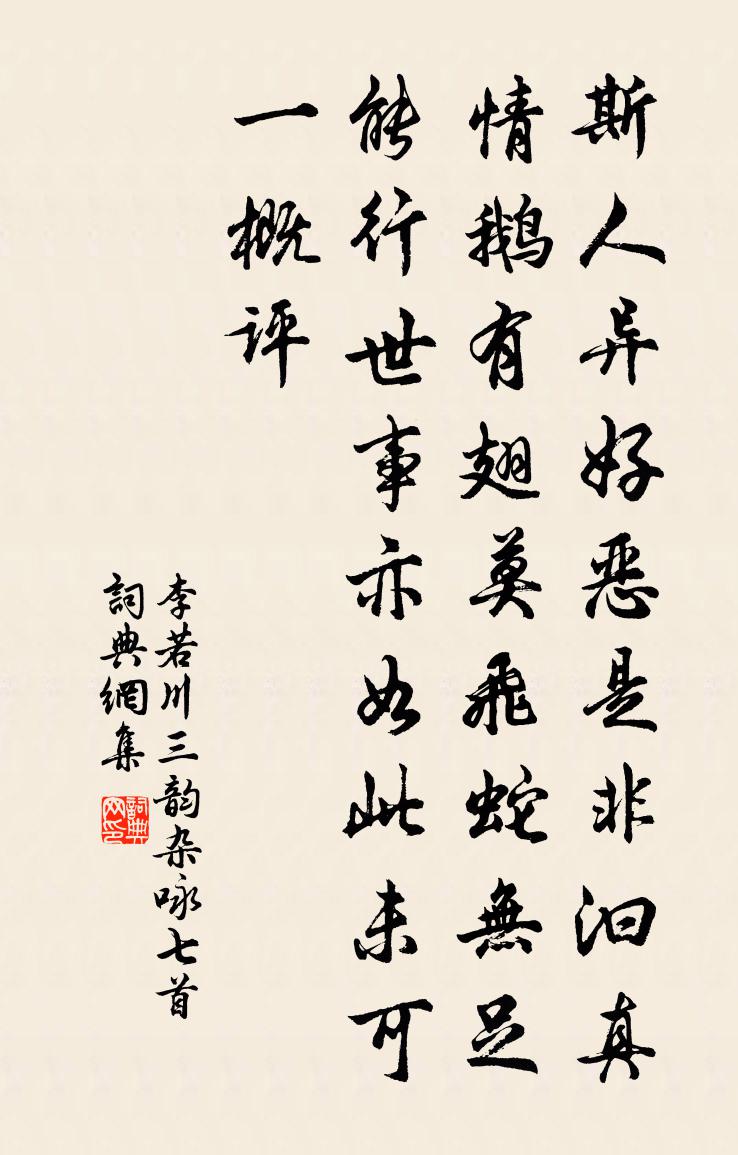 斯人异好恶是非汩真
情鹅有翅莫飛蛇無足
能行世事亦如此未可
一概评
李若川三韵杂咏七首
詞典網集
詞典网印